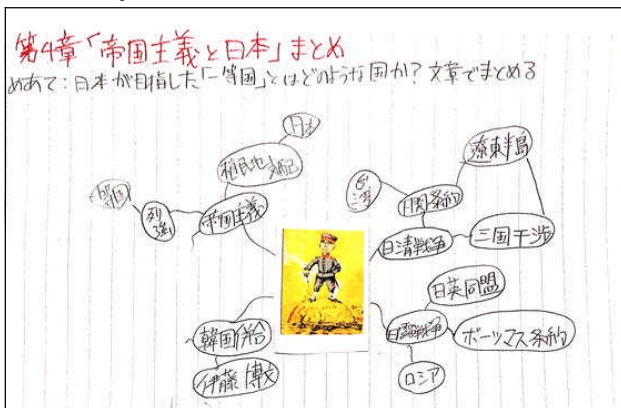 第4章「帝国主義と日本」まとめ
めあて：日本が目指した「一等国」とはどのような国か？文章でまとめる
日本
植民地支配
一等国
列強
帝国主義
台湾
遼東半島
下関条約
日清戦争
三国干渉
日英同盟
日露戦争
ポーツマス条約
ロシア
韓国併合
伊藤博文